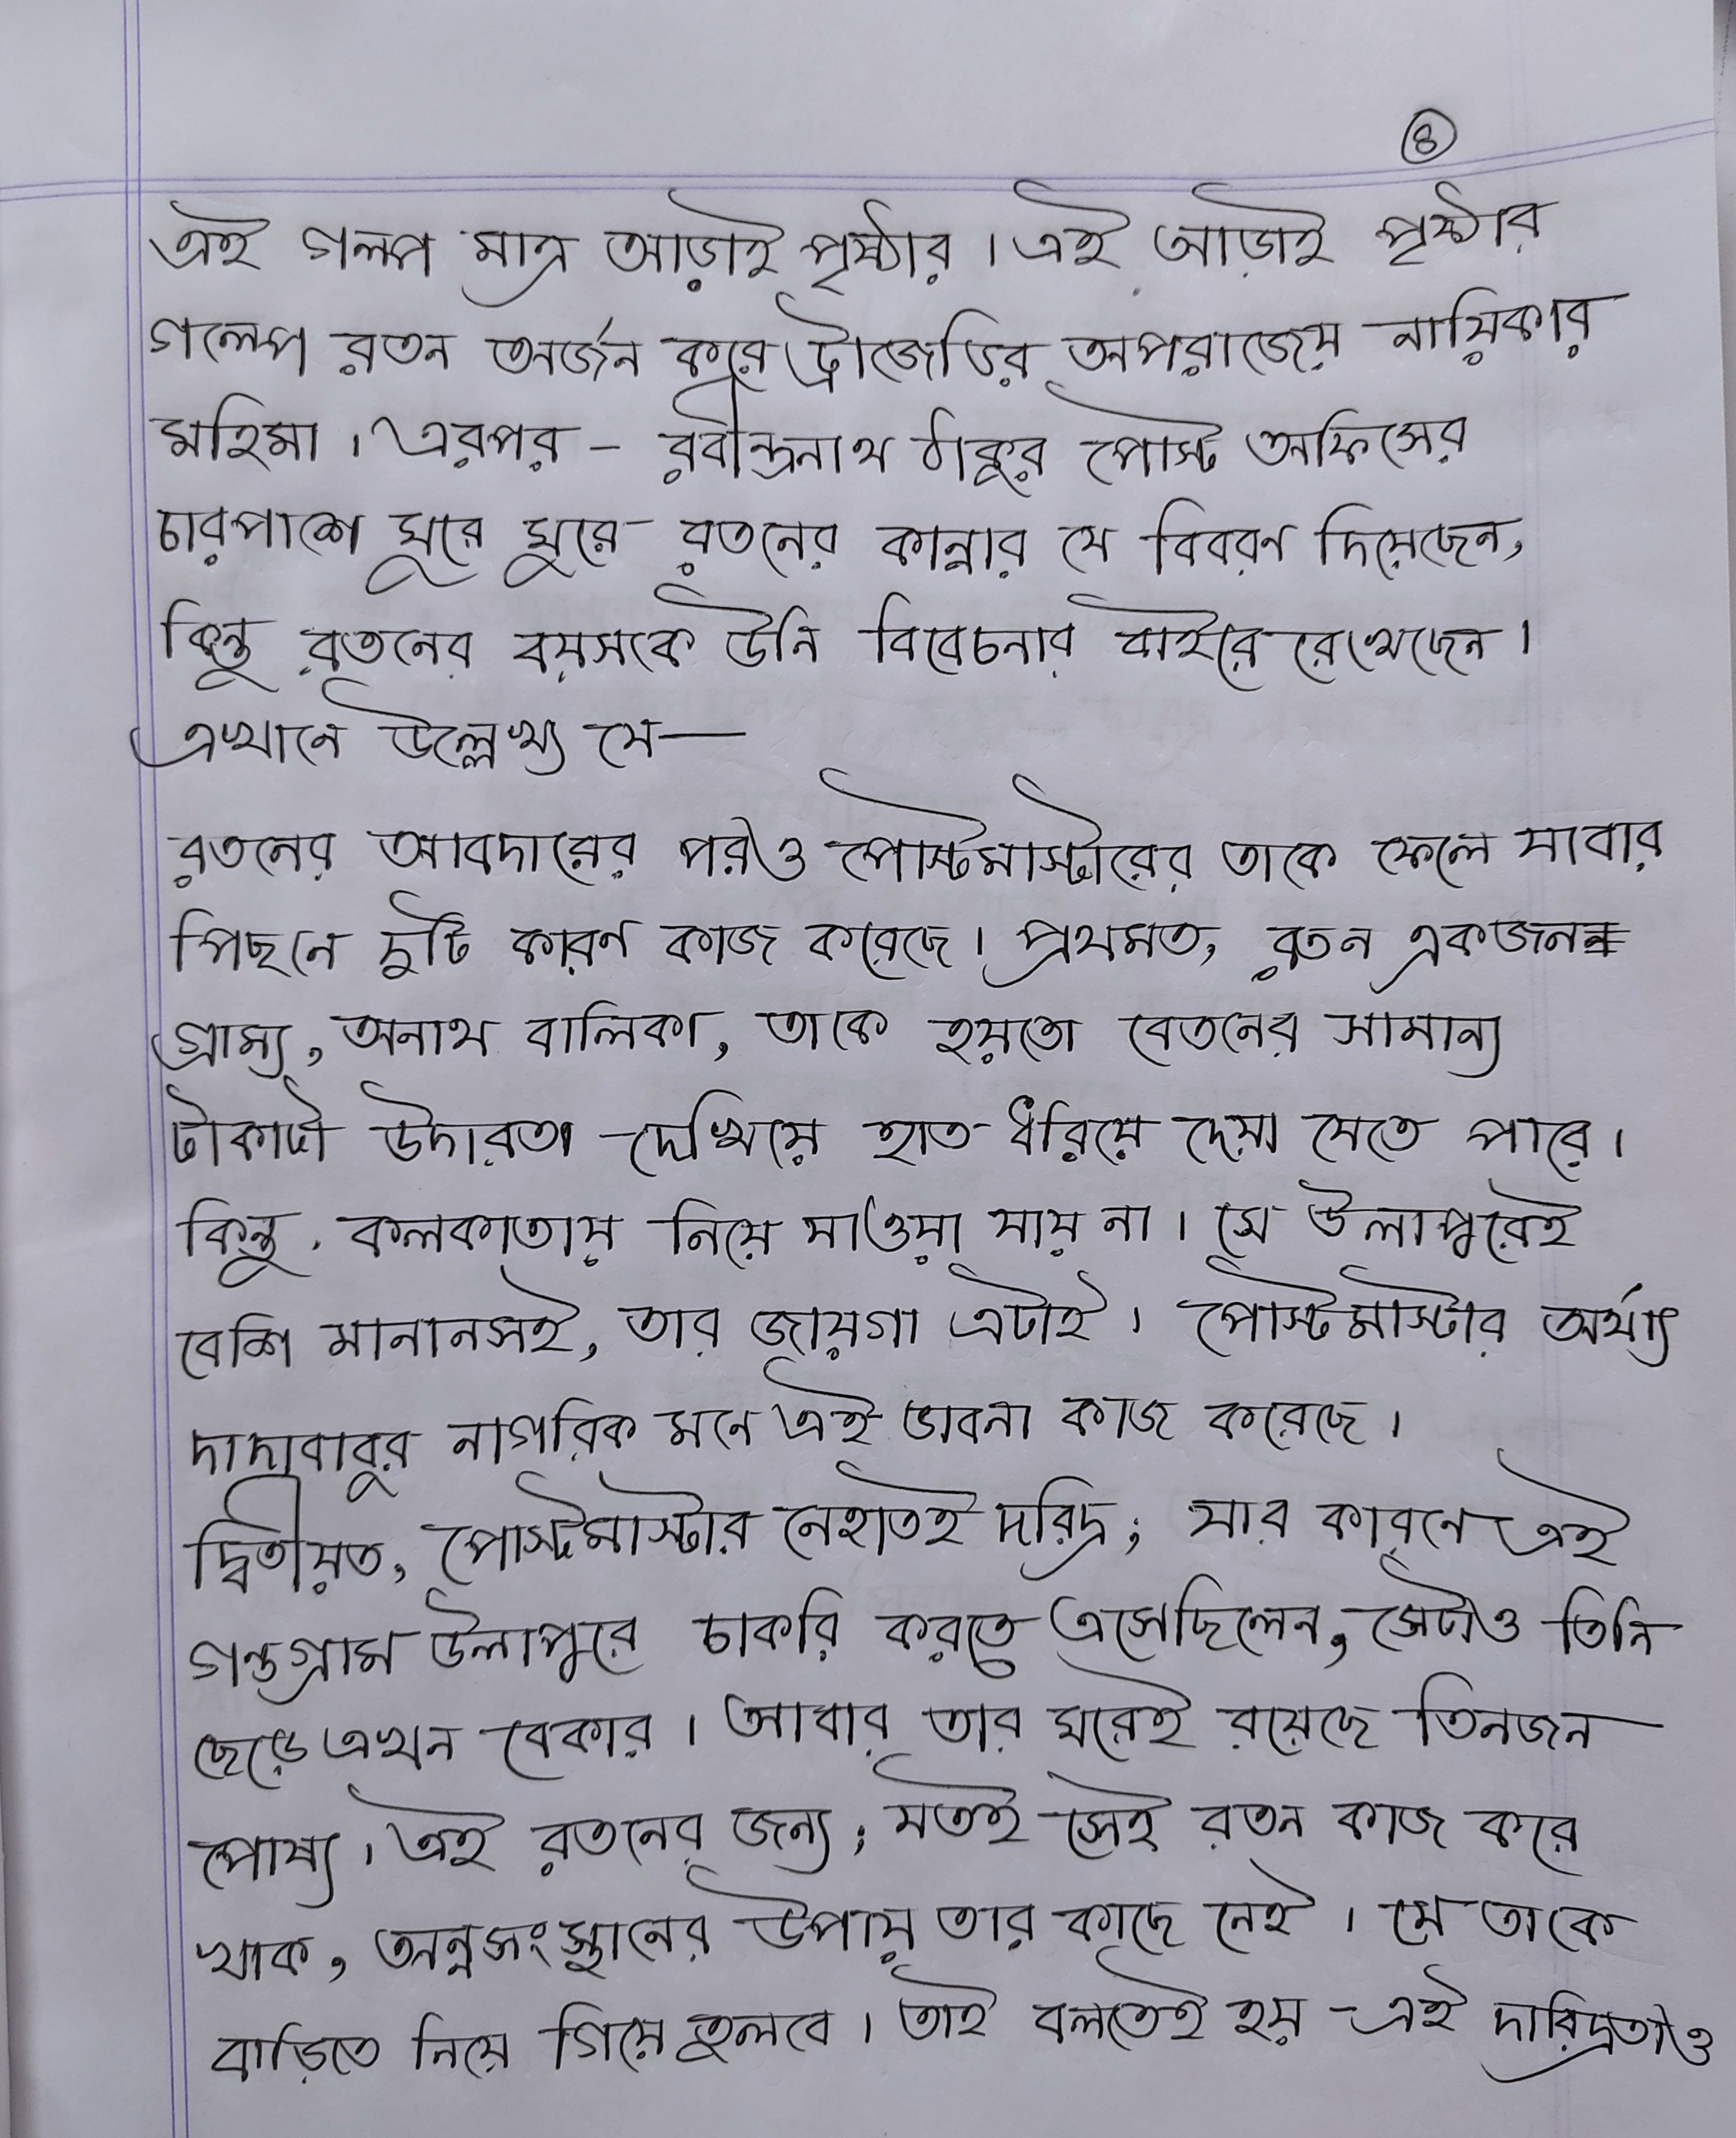 ৪
এই গল্প মাত্র আড়াই পৃষ্ঠার। এই আড়াই পৃষ্ঠার
গল্পে রতন অর্জন করে ট্রাজেডির অপরাজেয় নায়িকার
মহিমা। এরপর - রবীন্দ্রনাথ ঠাকুর পোস্ট অফিসের
চারপাশে ঘুরে ঘুরে রতনের কান্নার যে বিবরণ দিয়েছেন,
কিন্তু রতনের বয়সকে উনি বিবেচনার বাইরে রেখেছেন।
এখানে উল্লেখ্য যে—
রতনের আবদারের পরও পোস্টমাস্টারের তাকে ফেলে যাবার
পিছনে দুটি কারণ কাজ করেছে। প্রথমত, রতন একজন
গ্রাম্য, অনাথ বালিকা, তাকে হয়তো বেতনের সামান্য
টাকাটা উদারতা দেখিয়ে হাত ধরিয়ে দেয়া যেতে পারে।
কিন্তু কলকাতায় নিয়ে যাওয়া যায় না। সে উলাপুরেই
বেশি মানানসই, তার জায়গা এটাই। পোস্টমাস্টার অর্থ্যাৎ
দাদাবাবুর নাগরিক মনে এই ভাবনা কাজ করেছে।
দ্বিতীয়ত, পোস্টমাস্টার নেহাতই দরিদ্র; যার কারনে এই
গন্ডগ্রাম উলাপুরে চাকরি করতে এসেছিলেন, সেটাও তিনি
ছেড়ে এখন বেকার। আবার তার ঘরেই রয়েছে তিনজন
পোষ্য। এই রতনের জন্য; যতই সেই রতন কাজ করে
থাক, অন্নসংস্থানের উপায় তার কাছে নেই। যে তাকে
বাড়িতে নিয়ে গিয়ে তুলবে। তাই বলতেই হয় - এই দারিদ্রতাও